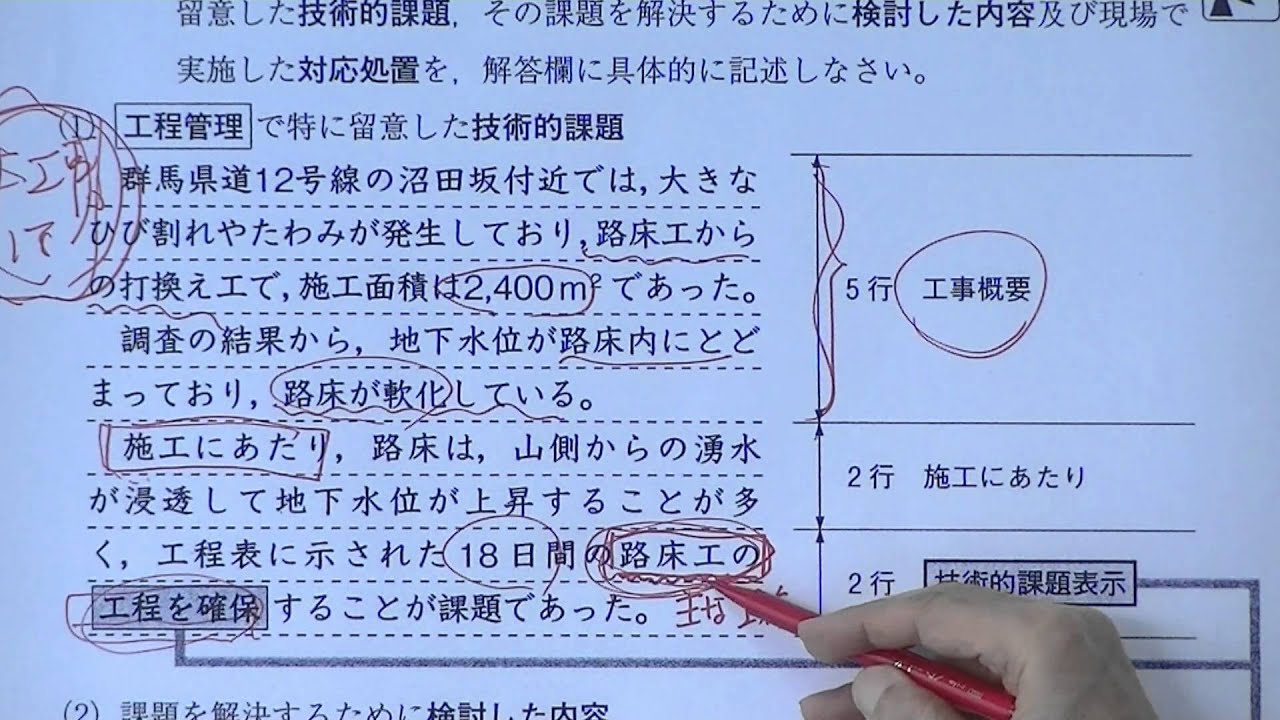 留意した技術的課題，その課題を解決するために検討した内容及び現場で
実施した対応処置を，解答欄に具体的に記述しなさい。
(1) 工程管理 で特に留意した技術的課題
群馬県道12号線の沼田坂付近では，大きな
ひび割れやたわみが発生しており，路床工から
の打換え工で，施工面積は2,400m²であった。
調査の結果から，地下水位が路床内にとど
まっており，路床が軟化している。
施工にあたり，路床は，山側からの湧水
が浸透して地下水位が上昇することが多
く，工程表に示された18日間の路床工の
工程を確保することが課題であった。
主な
5行 工事概要
2行 施工にあたり
2行 技術的課題表示
(2) 課題を解決するために検討した内容